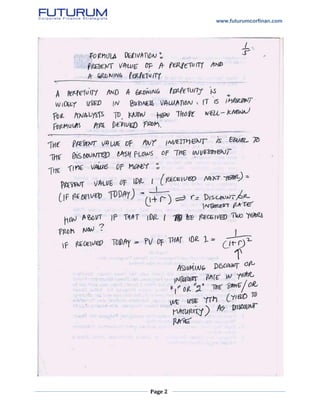 FUTURUM
Corporate Finance Strategists
www.futurumcorfinan.com
1/5
FORMULA DERIVATION:
PRESENT VALUE OF A PERPETUITY AND
A GROWING PERPETUITY
A PERPETUITY AND A GROWING PERPETUITY IS
WIDELY USED IN BUSINESS VALUATION. IT IS IMPORTANT
FOR ANALYSTS TO KNOW HOW THOSE WELL-KNOWN
FORMULAS ARE DERIVED FROM.
THE PRESENT VALUE OF ANY INVESTMENT IS EQUAL TO
THE DISCOUNTED CASH FLOWS OF THE INVESTMENT.
THE TIME VALUE OF MONEY:
PRESENT VALUE OF IDR 1 (RECEIVED NEXT YEAR) =
(IF RECEIVED TODAY) = 1/(1+r) ⇒ r = DISCOUNT/OR
INTEREST RATE
HOW ABOUT IF THAT IDR 1 BE RECEIVED TWO YEARS
FROM NOW?
IF RECEIVED TODAY = PV OF THAT IDR 1 = 1/(1+r)²
↑
ASSUMING DISCOUNT OR
INTEREST RATE IN YEAR
"1" OR "2" THE SAME/OR
WE USE YTM (YIELD TO
MATURITY) AS DISCOUNT
RATE
Page 2